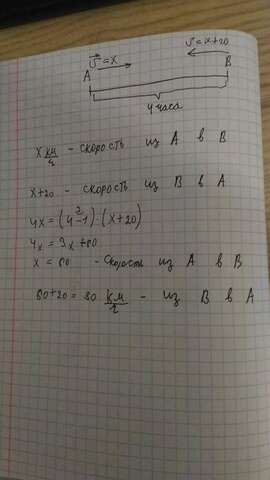 v⃗ = x v⃗ = x+20
A B
4 часа
x км/ч - скорость из A в B
x+20 - скорость из B в A
4x = (4-1)·(x+20)
4x = 3x+60
x = 60 - скорость из A в B
60+20 = 80 км/ч - из B в A